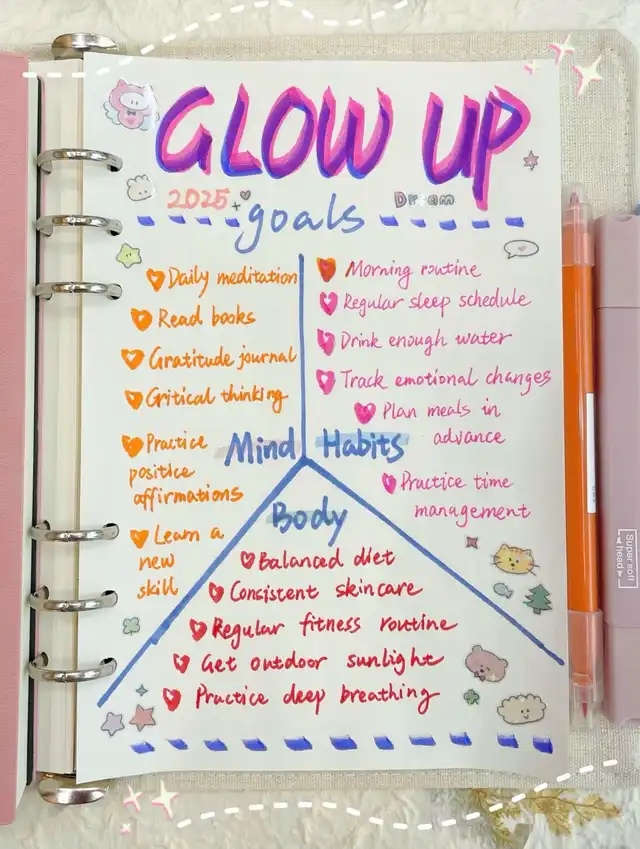 GLOW UP
2025
goals
Dream
Daily meditation
Read books
Gratitude journal
Gritical thinking
Practice
positice
affirmations
Learn a
new
skill
Mind
Morning routine
Regular sleep schedule
Drink enough water
Track emotional changes
Plan meals in
advance
Practice time
management
Habits
Body
Balanced diet
Consistent skincare
Regular fitness routine
Get outdoor sunlight
Practice deep breathing
Super soft
head